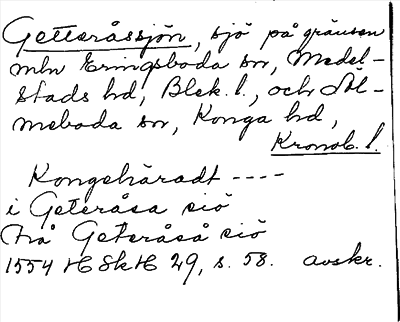 Getteråssjön, sjö på gränsen
mln Eringsboda sn, Medel-
stads hd, Blek. l., och Äl-
meboda sn, Konga hd,
Kronob. l.
Kongehäradt ----
i Geteråsa siö
frå Geteråså siö
1554 HSkH 29, s. 58. avskr.